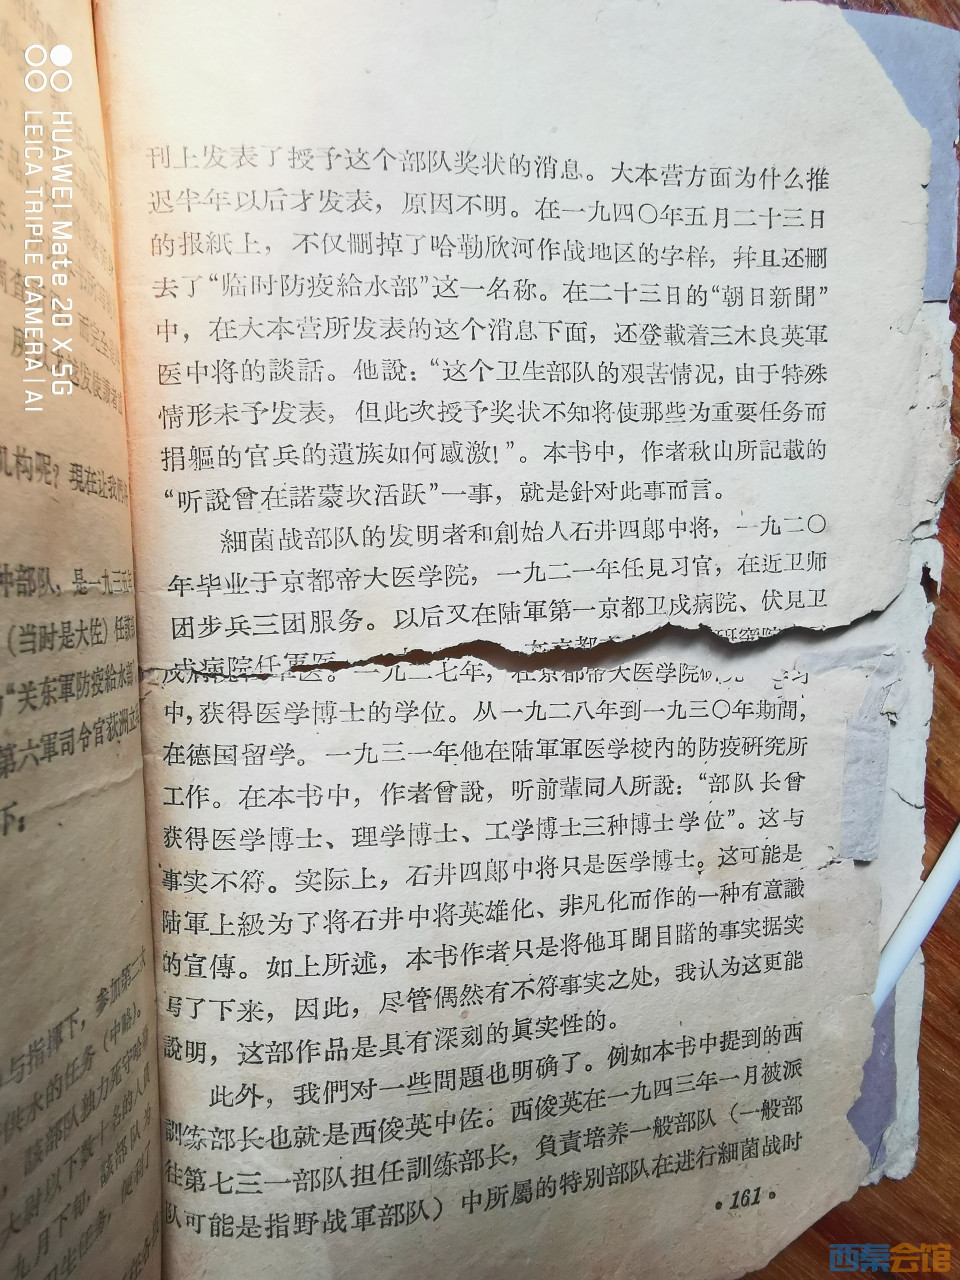 刊上发表了授予这个部队奖状的消息。大本营方面为什么推
迟半年以后才发表，原因不明。在一九四〇年五月二十三日
的报紙上，不仅删掉了哈勒欣河作战地区的字样，并且还删
去了“临时防疫給水部”这一名称。在二十三日的“朝日新聞”
中，在大本营所发表的这个消息下面，还登載着三木良英軍
医中将的談話。他說：“这个卫生部队的艰苦情况，由于特殊
情形未予发表，但此次授予奖状不知将使那些为重要任务而
捐軀的官兵的遺族如何感激！”。本书中，作者秋山所記載的
“听說曾在諾蒙坎活跃”一事，就是針对此事而言。
細菌战部队的发明者和創始人石井四郞中将，一九二〇
年毕业于京都帝大医学院，一九二一年任見习官，在近卫师
团步兵三团服务。以后又在陆軍第一京都卫戍病院、伏見卫
戍病院任軍医。一九二七年，在京都帝大医学院
中，获得医学博士的学位。从一九二八年到一九三〇年期間，
在德国留学。一九三一年他在陆軍軍医学校內的防疫硏究所
工作。在本书中，作者曾說，听前輩同人所說：“部队长曾
获得医学博士、理学博士、工学博士三种博士学位”。这与
事实不符。实际上，石井四郞中将只是医学博士。这可能是
陆軍上級为了将石井中将英雄化、非凡化而作的一种有意識
的宣傳。如上所述，本书作者只是将他耳聞目睹的事实据实
写了下来，因此，尽管偶然有不符事实之处，我认为这更能
說明，这部作品是具有深刻的眞实性的。
此外，我們对一些問題也明确了。例如本书中提到的西
訓练部长也就是西俊英中佐。西俊英在一九四三年一月被派
往第七三一部队担任訓练部长，負責培养一般部队（一般部
队可能是指野战軍部队）中所屬的特别部队在进行細菌战时
·161·
机构呢？現在让我們
种部队，是一九三五年
（当时是大佐）任部
“关东軍防疫給水部
第六軍司令官荻洲立
下：
与指揮下，参加第二次
供水的任务（中略）。
該部队独力死守哈勒
大尉以下数十名的人員
九月下旬，該部队
HUAWEI Mate 20 X 5G
LEICA TRIPLE CAMERA | AI
西秦会馆